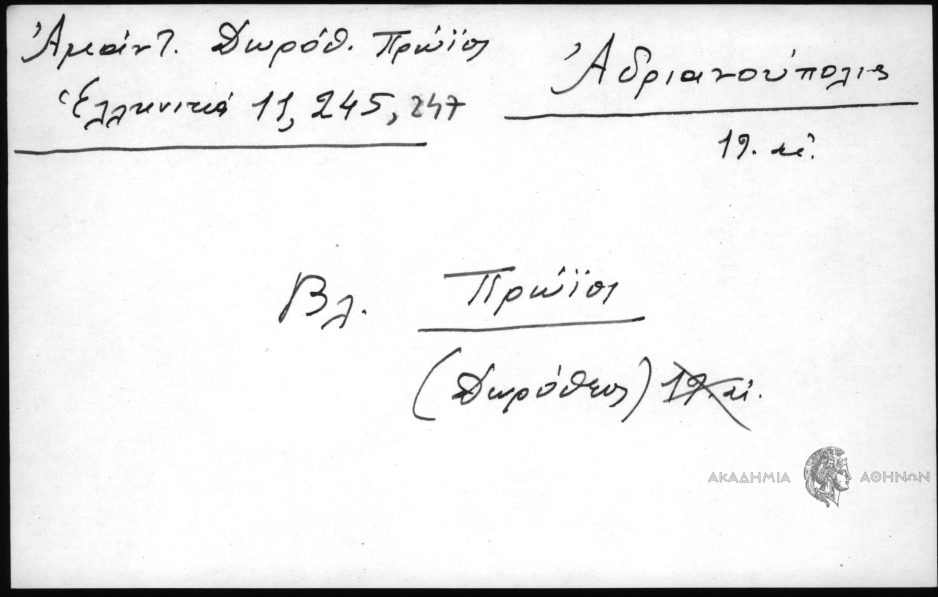 Ἀμάντ. Δωρόθ. Πρώϊος
Ἑλληνικά 11, 245, 247
Ἀδριανούπολις
19. αἰ.
Βλ. Πρώϊος
(Δωρόθεος) 19. αἰ.
ΑΚΑΔΗΜΙΑ ΑΘΗΝΩΝ